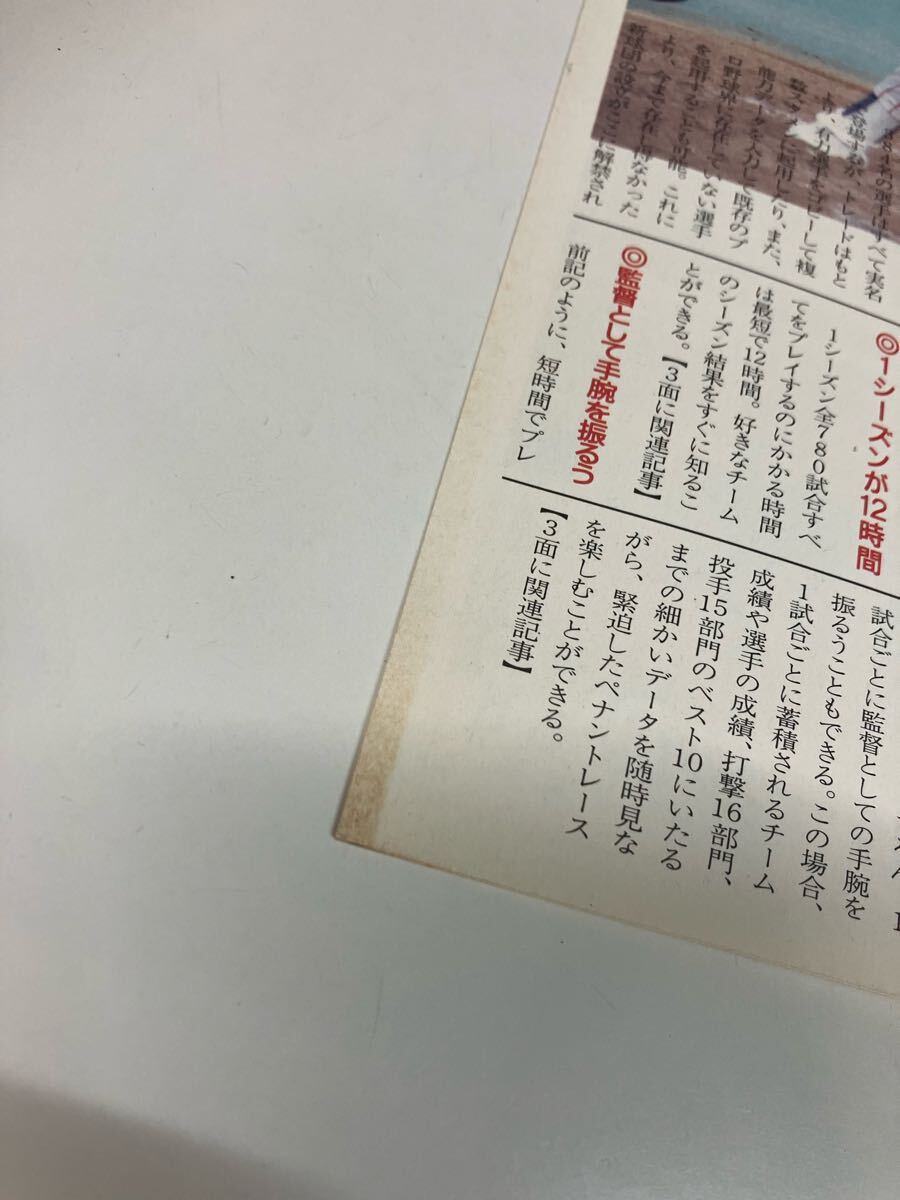 ８４名の選手はすべて実名
で登場するが、トレードはもと
より、有力選手をコピーして複
数スタメンに起用したり、また、
能力データを入力して既存のプ
ロ野球界に存在していない選手
を起用することも可能。これに
より、今まで存在し得なかった
新球団の設立がここに解禁され
◎1シーズンが12時間
1シーズン全780試合すべ
てをプレイするのにかかる時間
は最短で12時間。好きなチーム
のシーズン結果をすぐに知るこ
とができる。【3面に関連記事】
◎監督として手腕を振るう
前記のように、短時間でプレ
試合ごとに監督としての手腕を
振るうこともできる。この場合、
1試合ごとに蓄積されるチーム
成績や選手の成績、打撃16部門、
投手15部門のベスト10にいたる
までの細かいデータを随時見な
がら、緊迫したペナントレース
を楽しむことができる。
【3面に関連記事】